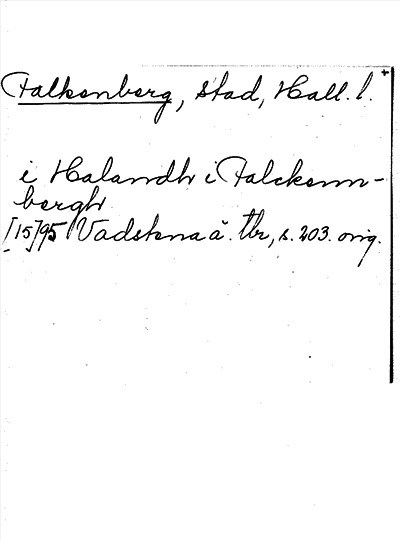 Falkenberg, stad, Hall. l. +
i Halandh i Falckenn-
bergh
[15]95 Vadstena ä. tbr, s. 203. orig.